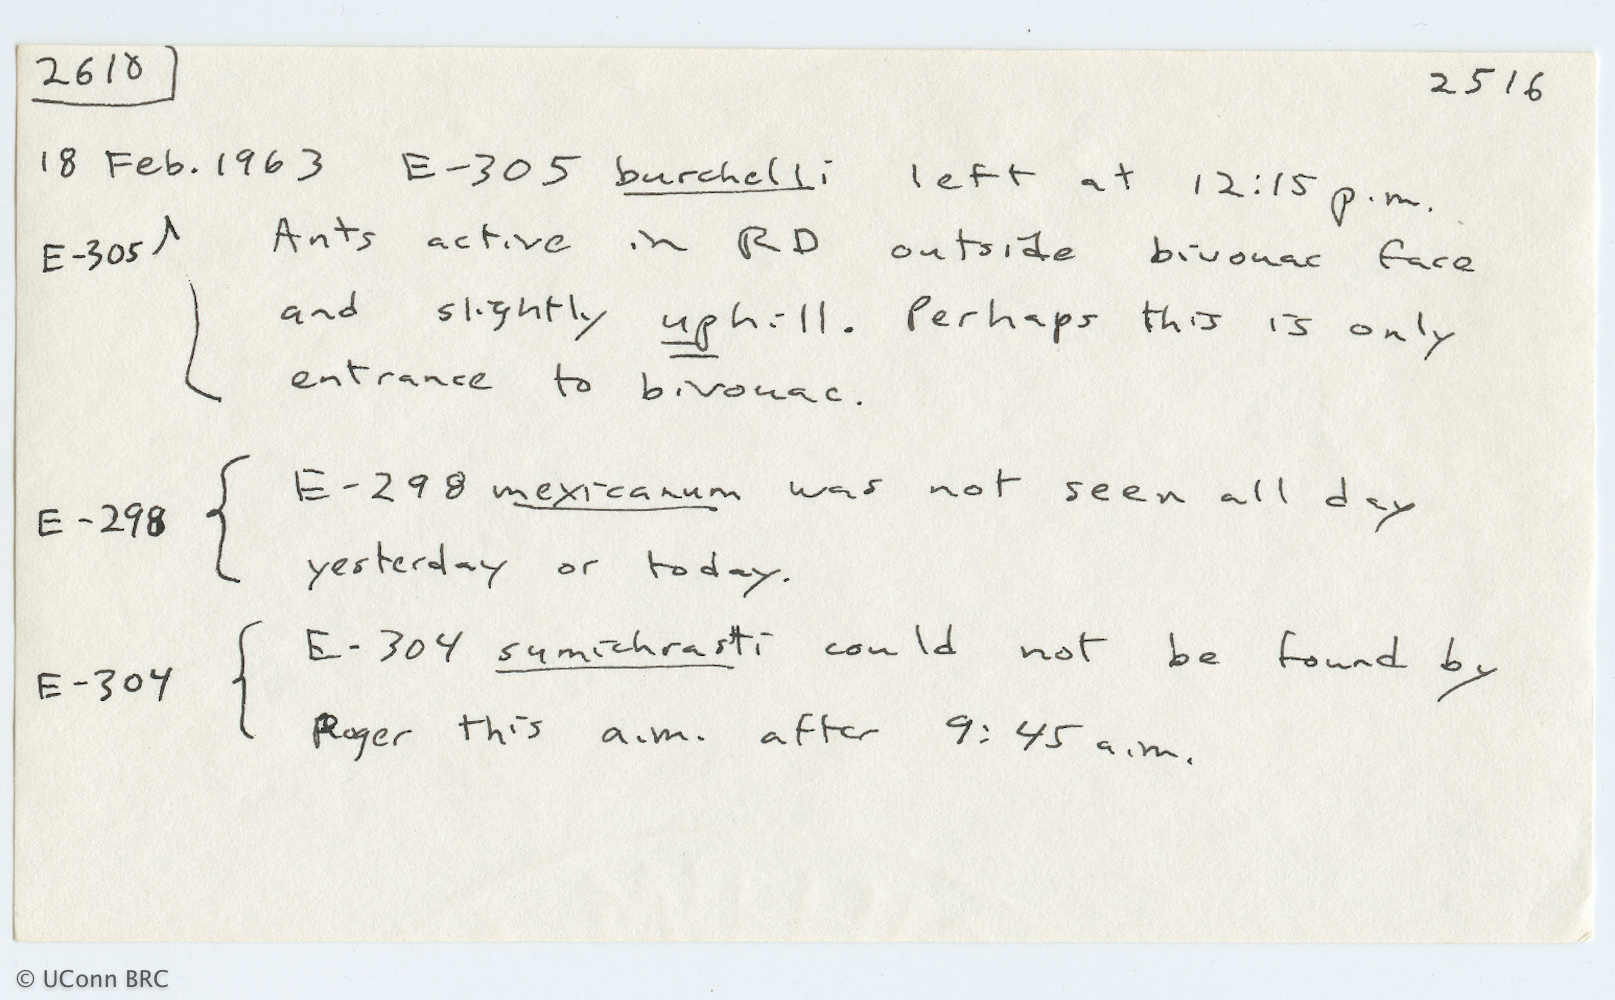 2618 2516
18 Feb. 1963 E-305 burchelli left at 12:15 p.m.
E-305 Ants active in RD outside bivouac face
and slightly uphill. Perhaps this is only
entrance to bivouac.
E-298 mexicanum was not seen all day
E-298
yesterday or today.
E-304 sumichrasti could not be found by
E-304
Roger this a.m. after 9:45 a.m.
© UConn BRC